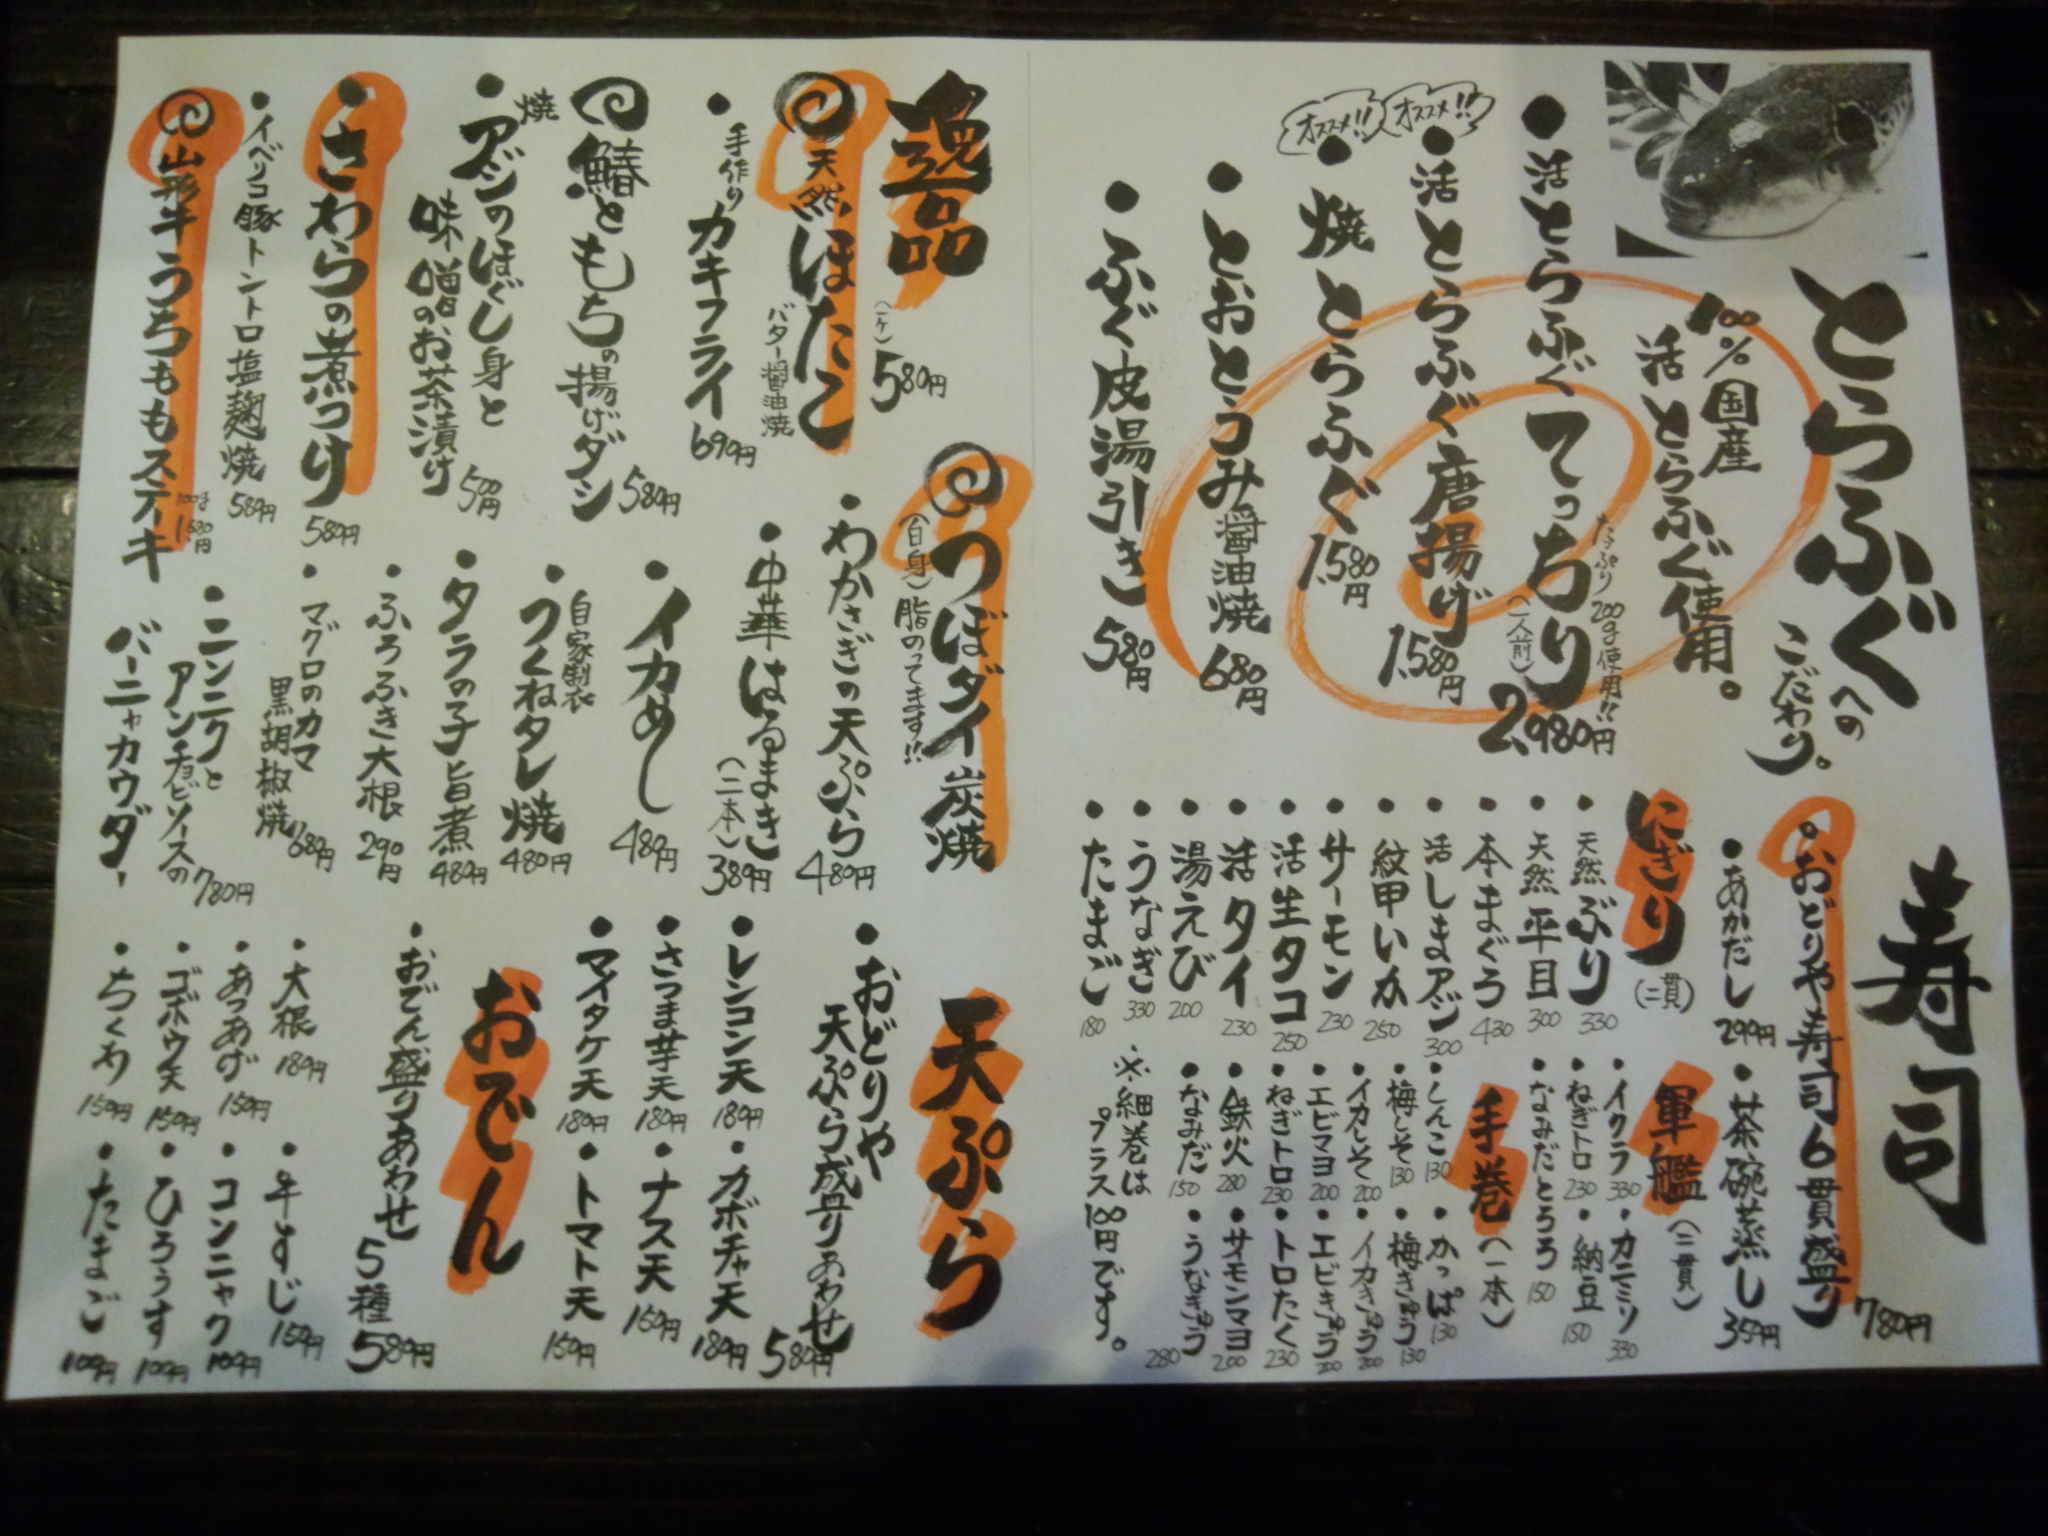 とらふぐへの
こだわり。
100%国産
活とらふぐ使用。
・活とらふぐてっちり
たっぷり200g使用!!
(一人前)
2,980円
オススメ!!
・活とらふぐ唐揚げ
1,580円
オススメ!!
・焼とらふぐ
1,580円
・とおとうみ醤油焼
680円
・ふぐ皮湯引き
580円
寿司
・おどりや寿司6貫盛り
780円
・あかだし
299円
・茶碗蒸し
35円
にぎり
(二貫)
・天然ぶり
330
・天然平目
300
・本まぐろ
430
・活しまアジ
300
・紋甲いか
250
・サーモン
230
・活生タコ
250
・活タイ
230
・湯えび
200
・うなぎ
330
・たまご
180
軍艦
(二貫)
・イクラ
330
・カニミソ
330
・ねぎトロ
230
・納豆
150
・なみだとろろ
150
手巻
(一本)
・しんこ
130
・かっぱ
130
・梅しそ
130
・梅きゅう
130
・イカしそ
200
・イカきゅう
200
・エビマヨ
200
・エビきゅう
200
・ねぎトロ
230
・トロたく
230
・鉄火
280
・サーモンマヨ
200
・なみだ
150
・うなぎゅう
280
※細巻は
プラス100円です。
逸品
天然ほたて
バター醤油焼
(一ケ)
580円
・手作りカキフライ
690円
鰆ともちの揚げダシ
580円
・焼アジのほぐし身と
味噌のお茶漬け
500円
・さわらの煮つけ
580円
・イベリコ豚トントロ塩麹焼
580円
山形牛うちももステーキ
100g
1,580円
つぼダイ炭焼
(白身)脂のってます!!
・わかさぎの天ぷら
480円
・中華はるまき
(二本)
389円
・イカめし
480円
・自家製つくねタレ焼
480円
・タラの子旨煮
480円
・ふろふき大根
290円
・マグロのカマ
黒胡椒焼
680円
・ニンニクと
アンチョビソースの
バーニャカウダー
780円
天ぷら
・おどりや
天ぷら盛りあわせ
580円
・レンコン天
180円
・カボチャ天
180円
・さつま芋天
180円
・ナス天
150円
・マイタケ天
180円
・トマト天
150円
おでん
・おでん盛りあわせ
5種
580円
・大根
189円
・牛すじ
150円
・あつあげ
150円
・コンニャク
100円
・ゴボウ天
150円
・ひろうす
100円
・ちくわ
150円
・たまご
100円